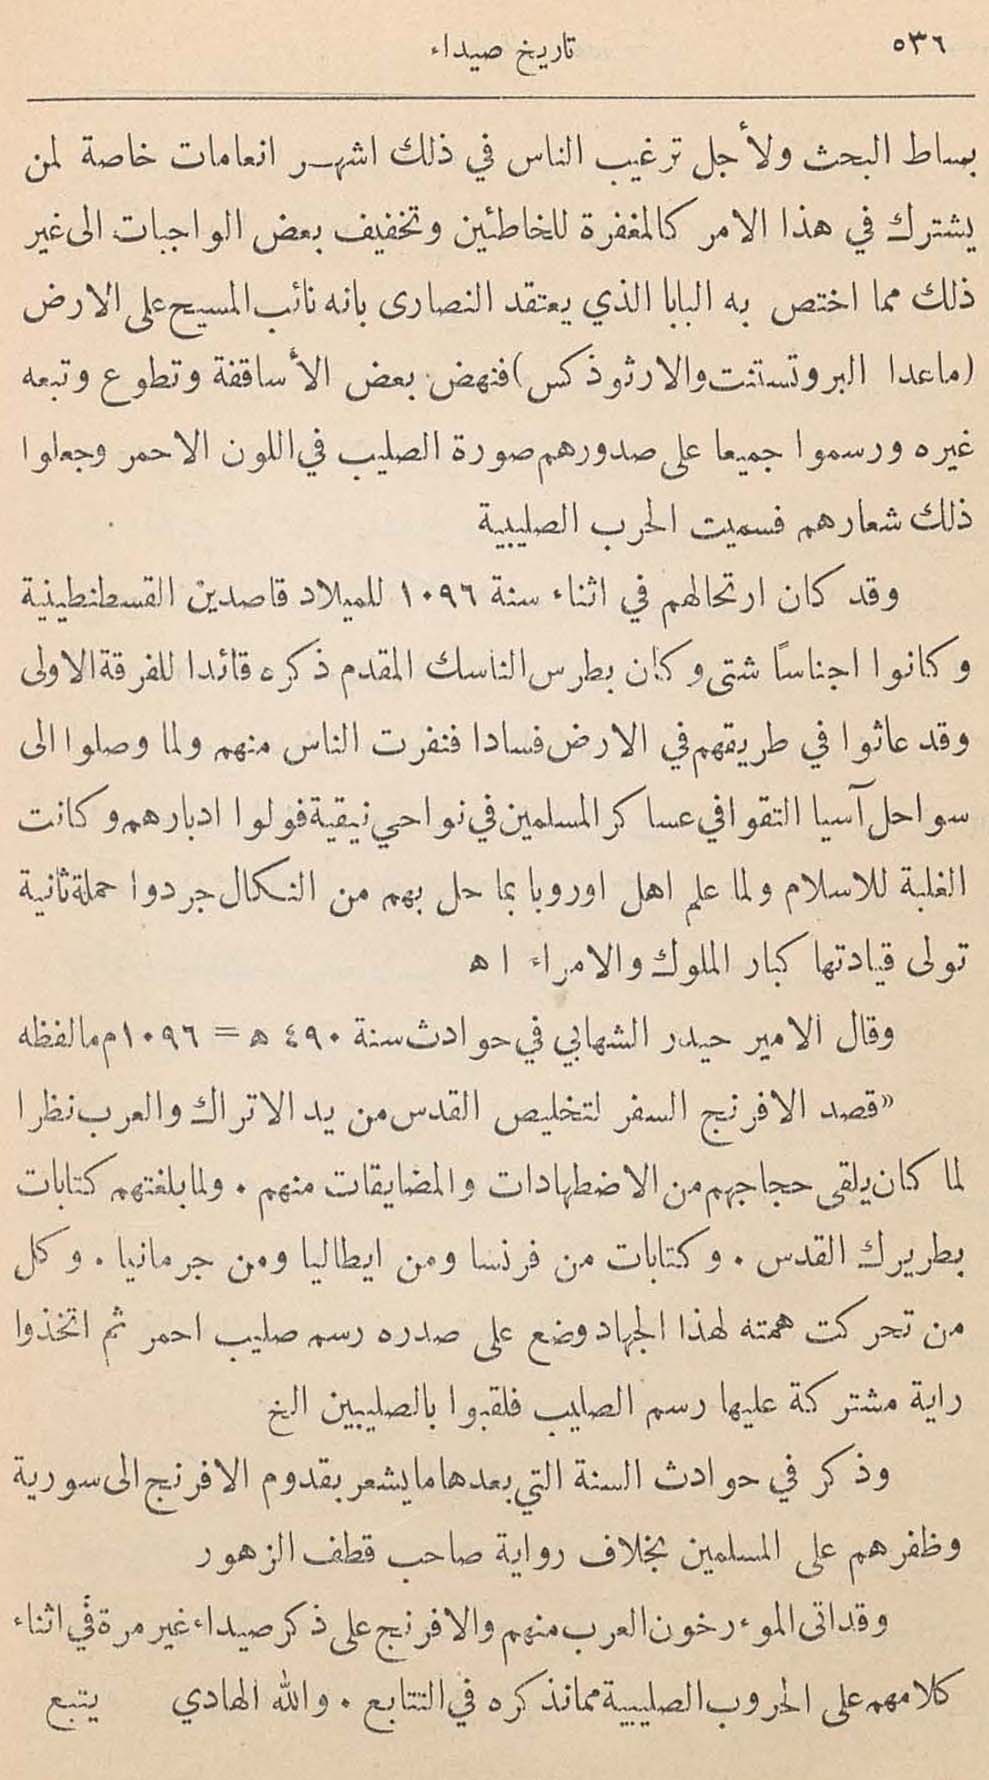 ٥٣٦
تاريخ صيداء
بساط البحث ولأجل ترغيب الناس في ذلك اشهر انعامات خاصة لمن
يشترك في هذا الامر كالمغفرة للخاطئين وتخفيف بعض الواجبات الى غير
ذلك مما اختص به البابا الذي يعتقد النصارى بانه نائب المسيح على الارض
(ماعدا البروتستنت والارثوذكس) فنهض بعض الأساقفة وتطوع وتبعه
غيره ورسموا جميعا على صدورهم صورة الصليب في اللون الاحمر وجعلوا
ذلك شعارهم فسميت الحرب الصليبية
وقد كان ارتحالهم في اثناء سنة ١٠٩٦ للميلاد قاصدين القسطنطينية
وكانوا اجناساً شتى وكان بطرس الناسك المقدم ذكره قائدا للفرقة الاولى
وقد عاثوا في طريقهم في الارض فسادا فنفرت الناس منهم ولما وصلوا الى
سواحل آسيا التقوا في عساكر المسلمين في نواحي نيقية فولوا ادبارهم وكانت
الغلبة للاسلام ولما علم اهل اوروبا بما حل بهم من النكال جردوا حملة ثانية
تولى قيادتها كبار الملوك والامراء ا ه
وقال الامير حيدر الشهابي في حوادث سنة ٤٩٠ ه = ١٠٩٦ م مالفظه
«قصد الافرنج السفر لتخليص القدس من يد الاتراك والعرب نظرا
لما كان يلقى حجاجهم من الاضطهادات والمضايقات منهم . ولما بلغتهم كتابات
بطريرك القدس . وكتابات من فرنسا ومن ايطاليا ومن جرمانيا . وكل
من تحركت همته لهذا الجهاد وضع على صدره رسم صليب احمر ثم اتخذوا
راية مشتركة عليها رسم الصليب فلقبوا بالصليبين الخ
وذكر في حوادث السنة التي بعدها مايشعر بقدوم الافرنج الى سورية
وظفرهم على المسلمين بخلاف رواية صاحب قطف الزهور
وقد اتى الموءرخون العرب منهم والافرنج على ذكر صيداء غير مرة في اثناء
كلامهم على الحروب الصليبية مما نذكره في التتابع . والله الهادي يتبع